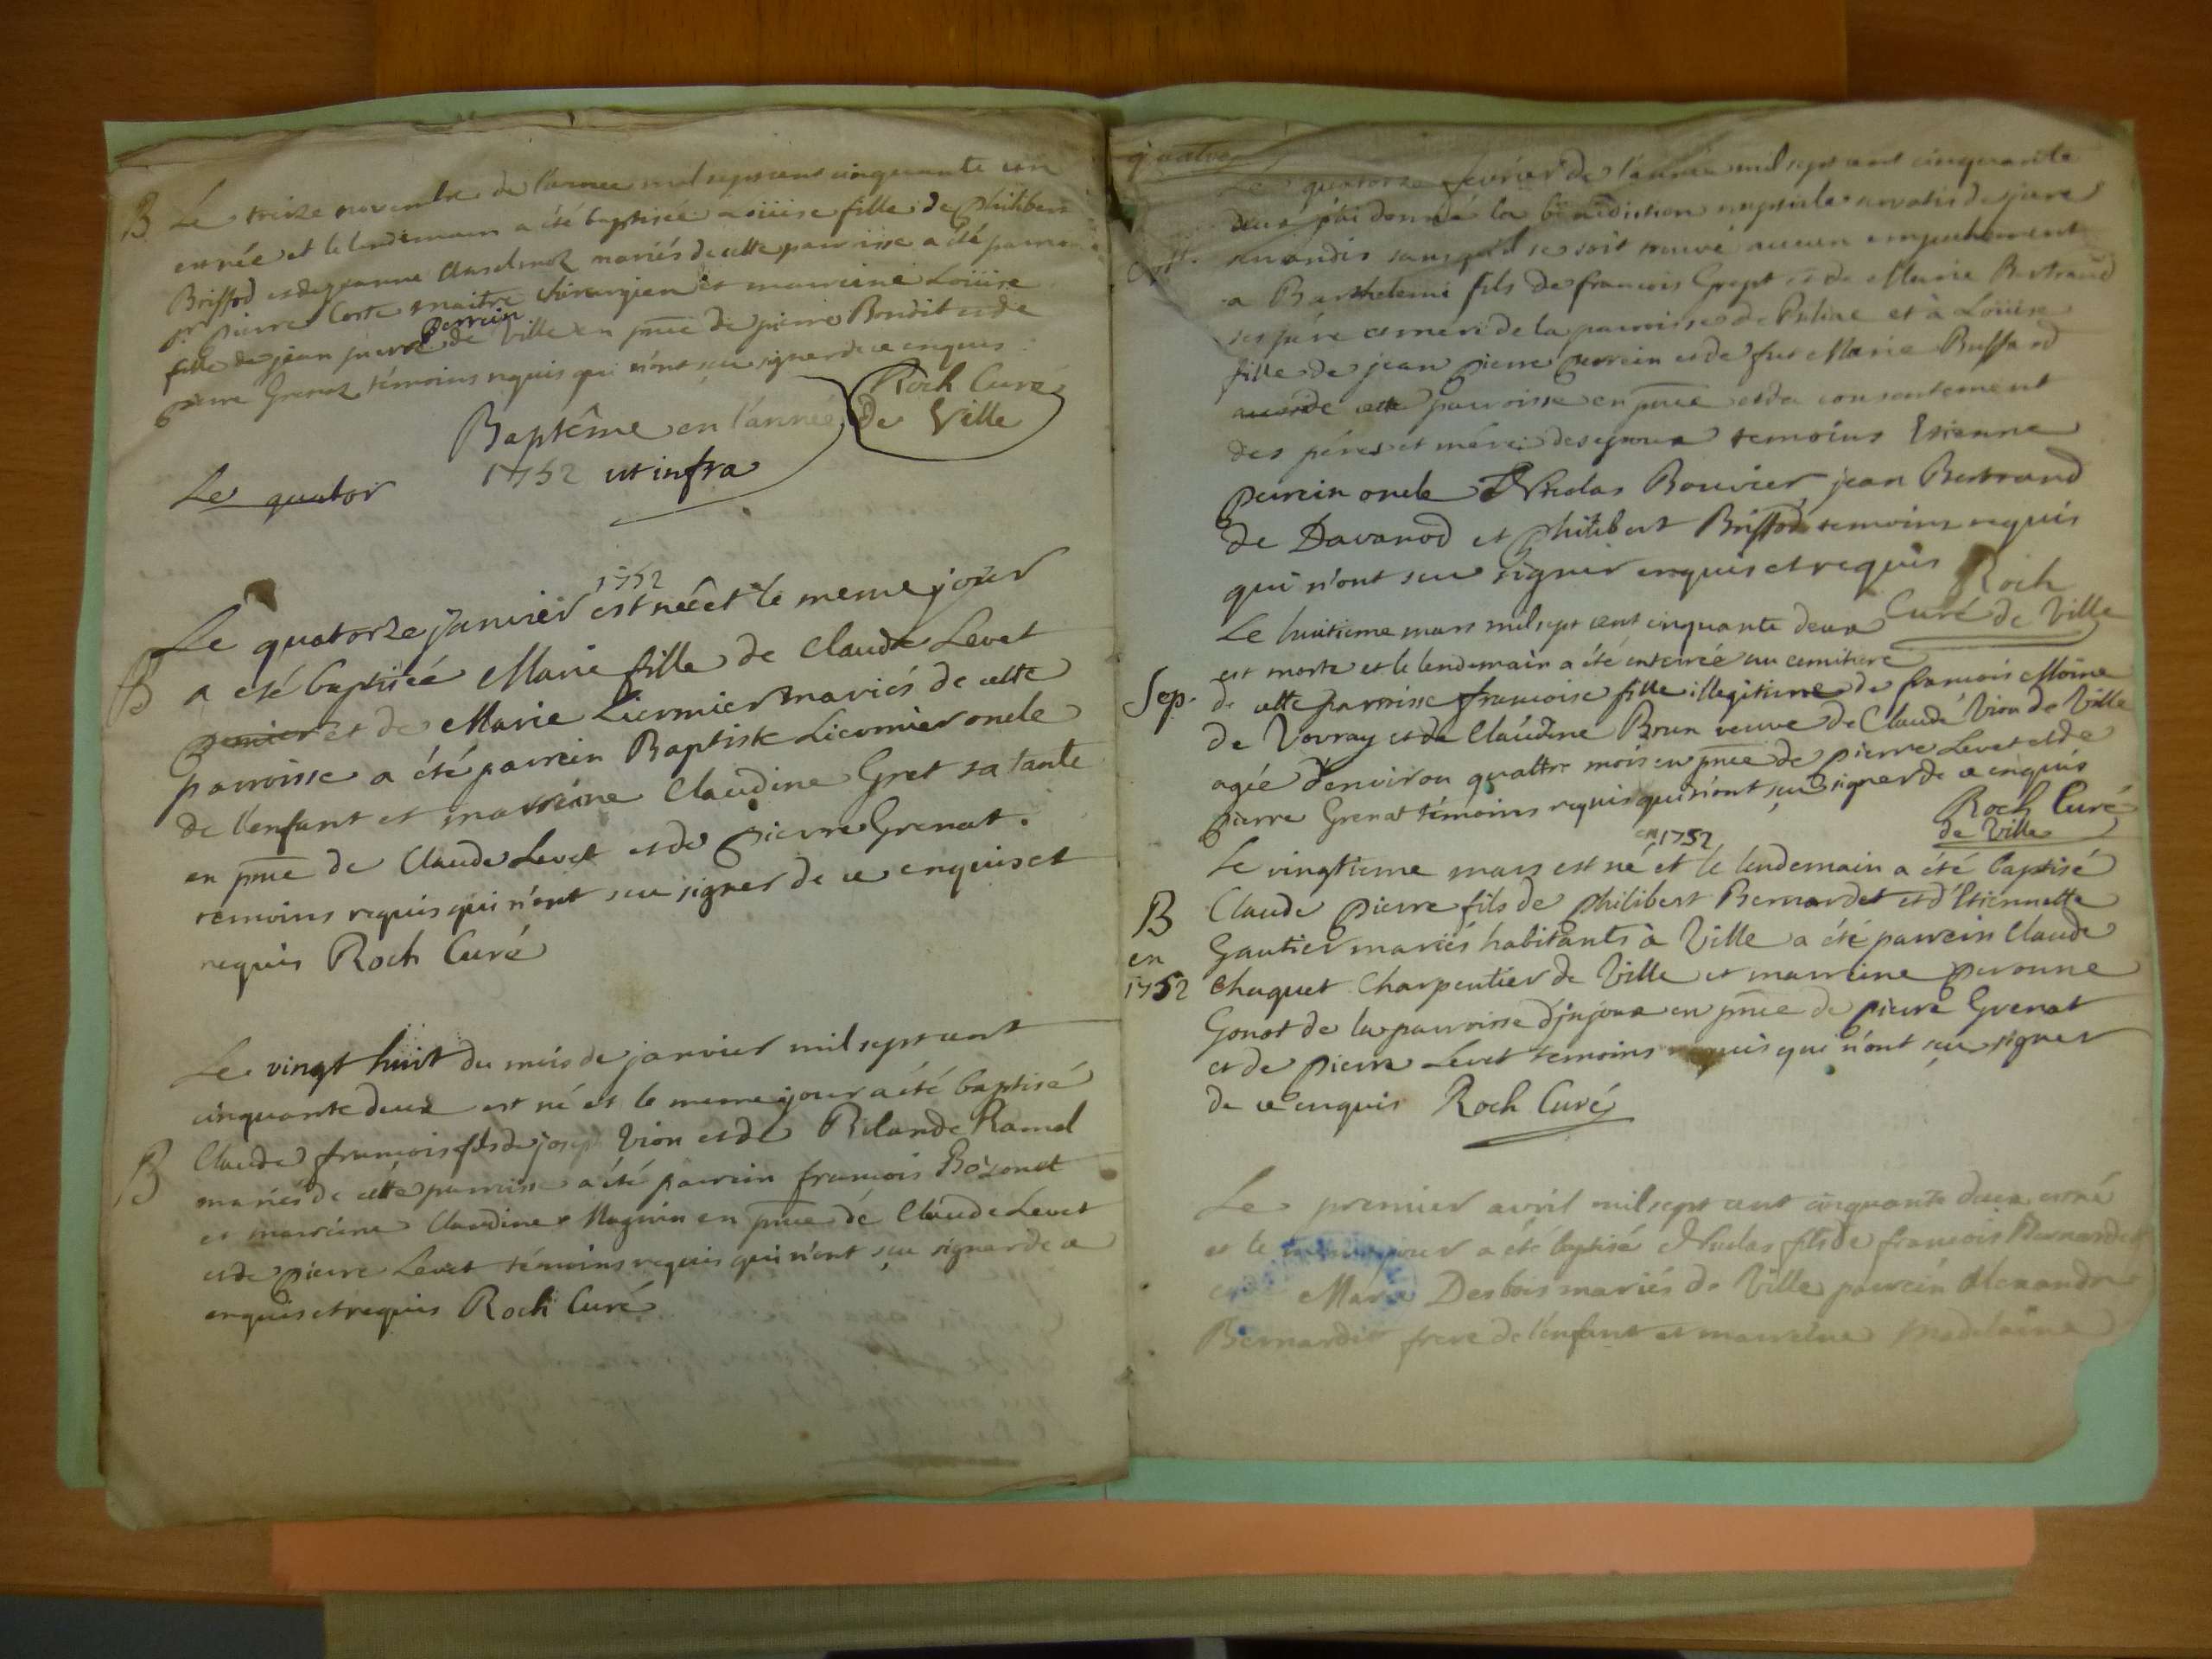 B Le treize novembre de l'année mil sept cent cinquante un
est née et le lendemain a été baptisée Loüise fille de Philibert
Briffod et de jeanne Anselmoz mariés de cette parroisse a été parrain
sr pierre Coste maitre chirurgien et marreine Loüise
perrein
fille de jean pierre de Ville en pnce de pierre Bondit et de
pierre Grenoz témoins requis qui n'ont sçu signer de ce enquis
Roch Curé
de Ville
Baptême en l'année
1752 ut infra
Le quator
1752
Le quatorze janvier est née et le meme jour
B a été baptisée Marie fille de Claude Levet
et de Marie Liermier mariés de cette
parroisse a été parrein Baptiste Liermier oncle
de l'enfant et marreine Claudine Gret sa tante
en pnce de Claude Levet et de pierre Grenat.
temoins requis qui n'ont sçu signer de ce enquis et
requis Roch Curé
Le vingt huit du mois de janvier mil sept cent
cinquante deux est né et le meme jour a été baptisé
Claude françois fils de josep Vion et de Rolande Ramel
B mariés de cette parroisse a été parrein françois Bozonet
et marreine Claudine Magnin en pnce de Claude Levet
et de pierre Levet témoins requis qui n'ont sçu signer de ce
enquis et requis Roch Curé
quatre
Le quatorze fevrier de l'année mil sept cent cinquante
deux j'ai donné la bénédiction nuptiale servatis de jure
servandis sans qu'il se soit trouvé aucun empechement
a Barthelemi fils de francois Grept et de Marie Bertrand
ses père et mere de la parroisse de et à Loüise
fille de jean pierre perrein et de fue Marie Buffard
de cette parroisse en pnce et du consentement
des péres et mére des epoux temoins Etienne
perrein oncle Nicolas Bouvier jean Bertrand
de Davanod et philibert Briffod temoins requis
qui n'ont sçu signer enquis et requis Roch
Curé de Ville
Le huitieme mars mil sept cent cinquante deux
est morte et le lendemain a été enterrée au cemitiere
Sep. de cette parroisse francoise fille illegitime de francois Moine
de Vovray et de Claudine Brun veuve de Claude Vion de Ville
agée d'environ quattre mois en pnce de pierre Levet et de
pierre Grenat témoins requis qui n'ont sçu signer de ce enquis
Roch Curé
de Ville
en 1752
Le vingtieme mars est né et le lendemain a été baptisé
B Claude pierre fils de philibert Bernardet et d'Etiennette
en Gautier mariés habitants à Ville a été parrein Claude
1752 Chaquet Charpentier de Ville et marreine peronne
Gonot de la parroisse d'injoux en pnce de pierre Grenat
et de pierre Levet temoins requis qui n'ont sçu signer
de ce enquis Roch Curé
Le premier avril mil sept cent cinquante deux est né
et le meme jour a été baptisé Nicolas fils de francois Bernardet
et de Marie Desbois mariés de Ville parrein Alexandre
Bernardet frere de l'enfant et marreine Madelaine